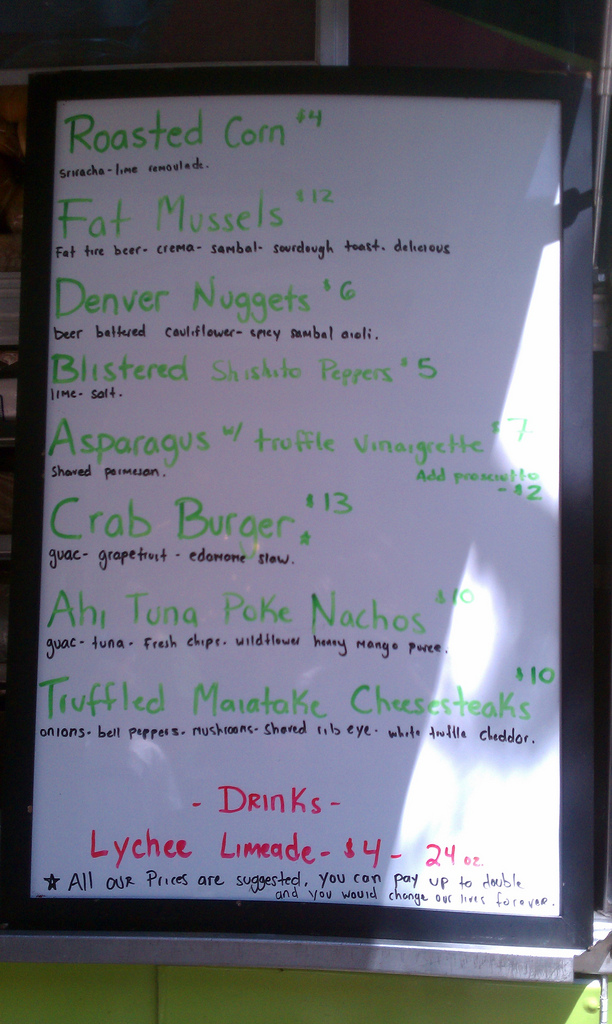 Roasted Corn $4
Sriracha-lime remoulade.
Fat Mussels $12
Fat tire beer- crema- sambal- sourdough toast. delicious
Denver Nuggets $6
beer battered cauliflower- spicy sambal aioli.
Blistered Shishito Peppers $5
lime- salt.
Asparagus w/ truffle vinaigrette $7
Shaved parmesan. Add prosciutto
- $2
Crab Burger $13
guac- grapefruit - edamame slaw.
Ahi Tuna Poke Nachos $10
guac- tuna- fresh chips- wildflower honey mango puree.
$10
Truffled Maiatake Cheesesteaks
onions- bell peppers- mushrooms- shaved rib eye- white truffle cheddar.
- Drinks -
Lychee Limeade- $4 - 24 oz.
★ All our Prices are suggested, you can pay up to double
and you would change our lives forever.